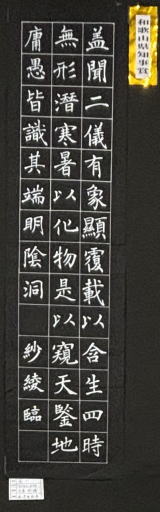 蓋聞二儀有象顯覆載以含生四時
無形潛寒暑以化物是以窺天鑒地
庸愚皆識其端明陰洞 紗綾臨
和歌山県知事賞